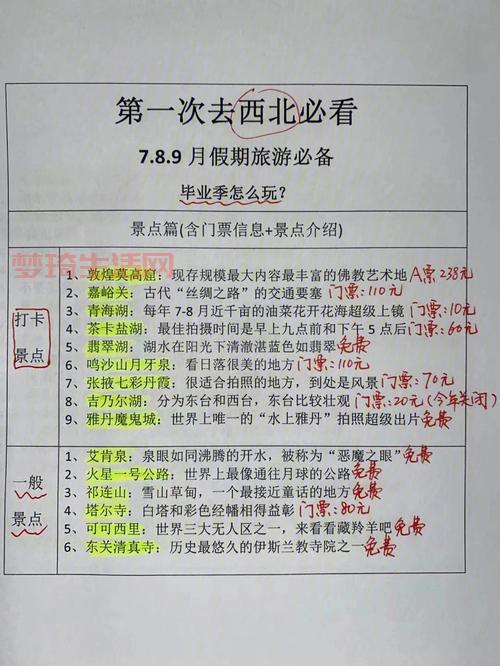 第一次去西北必看
7.8.9月假期旅游必备
毕业季怎么玩?
景点篇(含门票信息+景点介绍)
梦琦生活网
打卡
景点
1、敦煌莫高窟：现存规模最大内容最丰富的佛教艺术地 A票238元
2、嘉峪关：古代“丝绸之路”的交通要塞 门票:110元
3、青海湖：每年7-8月近千亩的油菜花开花海超级上镜 门票:10元
4、茶卡盐湖：最佳拍摄时间是早上九点前和下午5点后 门票:60元
5、翡翠湖：湖水在阳光下清澈湛蓝色如翡翠 免费
6、鸣沙山月牙泉：看日落很美的地方 门票:110元
7、张掖七彩丹霞：很适合拍照的地方，到处是风景 门票:70元
8、吉乃尔湖：分为东台和西台，东台比较壮观 门票:20元(今年关闭)
9、雅丹魔鬼城：世界上唯一的“水上雅丹”拍照超级出片 免费
一般
景点
1、艾肯泉：泉眼如同沸腾的开水，被称为“恶魔之眼” 免费
2、火星一号公路：世界上最像通往月球的公路 免费
3、祁连山：雪山草甸，一个最接近童话的地方 免费
4、塔尔寺：白塔和彩色经幡相得益彰 门票:80元
5、可可西里：世界三大无人区之一，来看看藏羚羊吧 免费
6、东关清真寺：历史最悠久的伊斯兰教寺院之一 免费